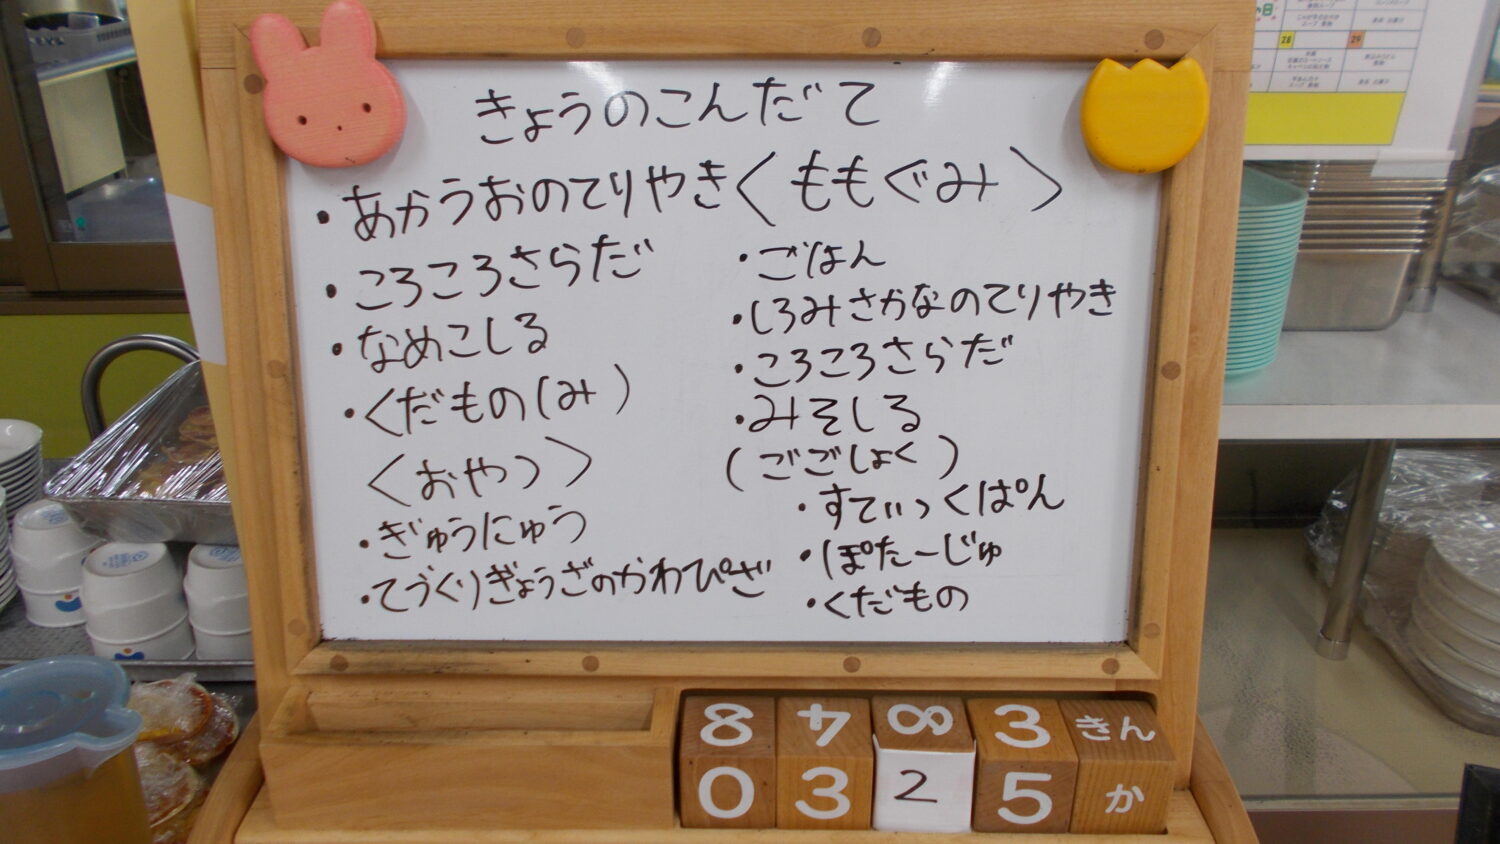 きょうのこんだて
・あかうおのてりやき
・ころころさらだ
・なめこしる
・くだもの(み)
〈おやつ〉
・ぎゅうにゅう
・てづくりぎょうざのかわぴざ
〈ももぐみ〉
・ごはん
・しろみさかなのてりやき
・ころころさらだ
・みそしる
(ごごしょく)
・すてぃっくぱん
・ぽたーじゅ
・くだもの
8 4 8 3 きん
0 3 2 5 か
28 29